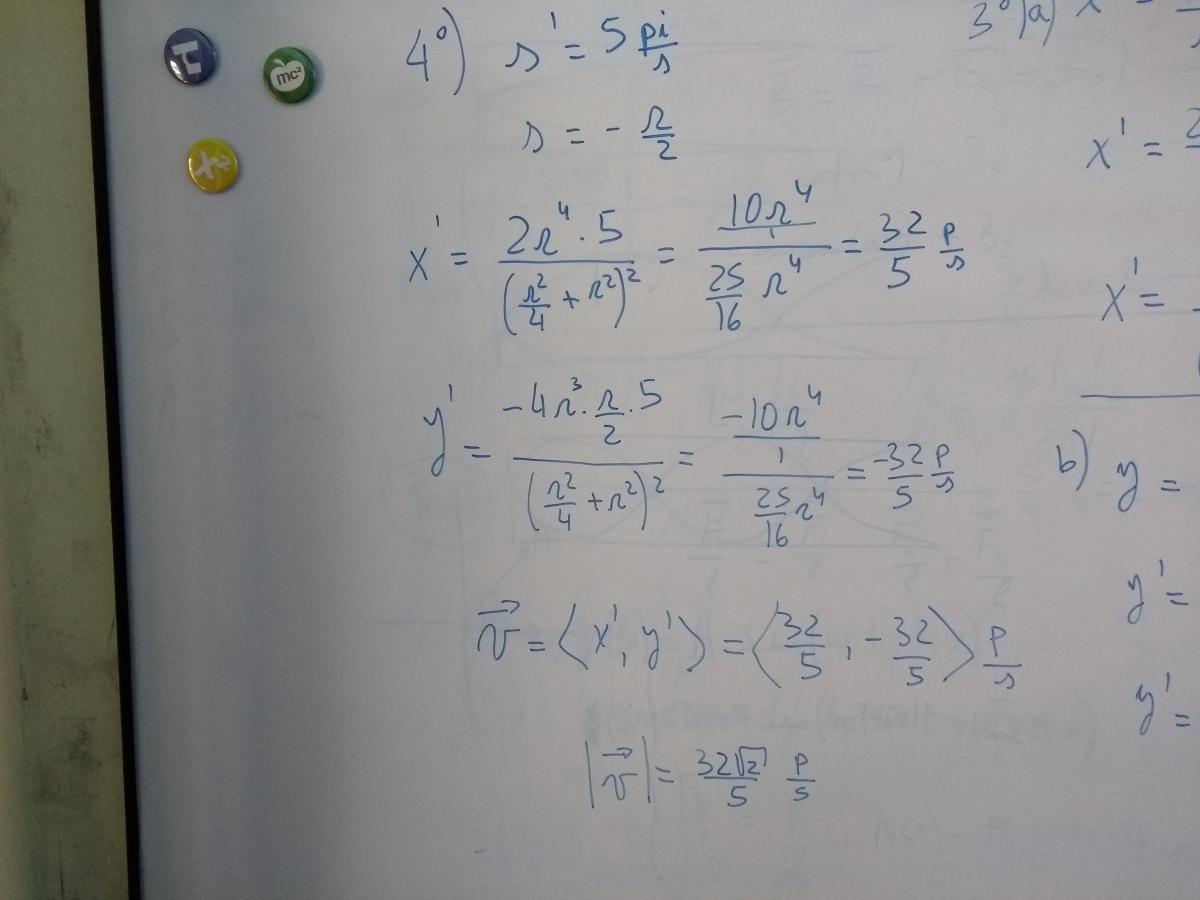 4°) s' = 5 pi/s
s = - r/2
x' = 2r⁴·5/(r²/4 + r²)² = (10r⁴/1)/(25/16 r⁴) = 32/5 p/s
y' = -4r³·r/2·5/(r²/4 + r²)² = (-10r⁴/1)/(25/16 r⁴) = -32/5 p/s
v⃗ = ⟨x', y'⟩ = ⟨32/5, -32/5⟩ p/s
|v⃗| = 32√2/5 p/s
3°)a) x' =
x' = 2
x' =
b) y =
y' =
y' =
mc²
x²